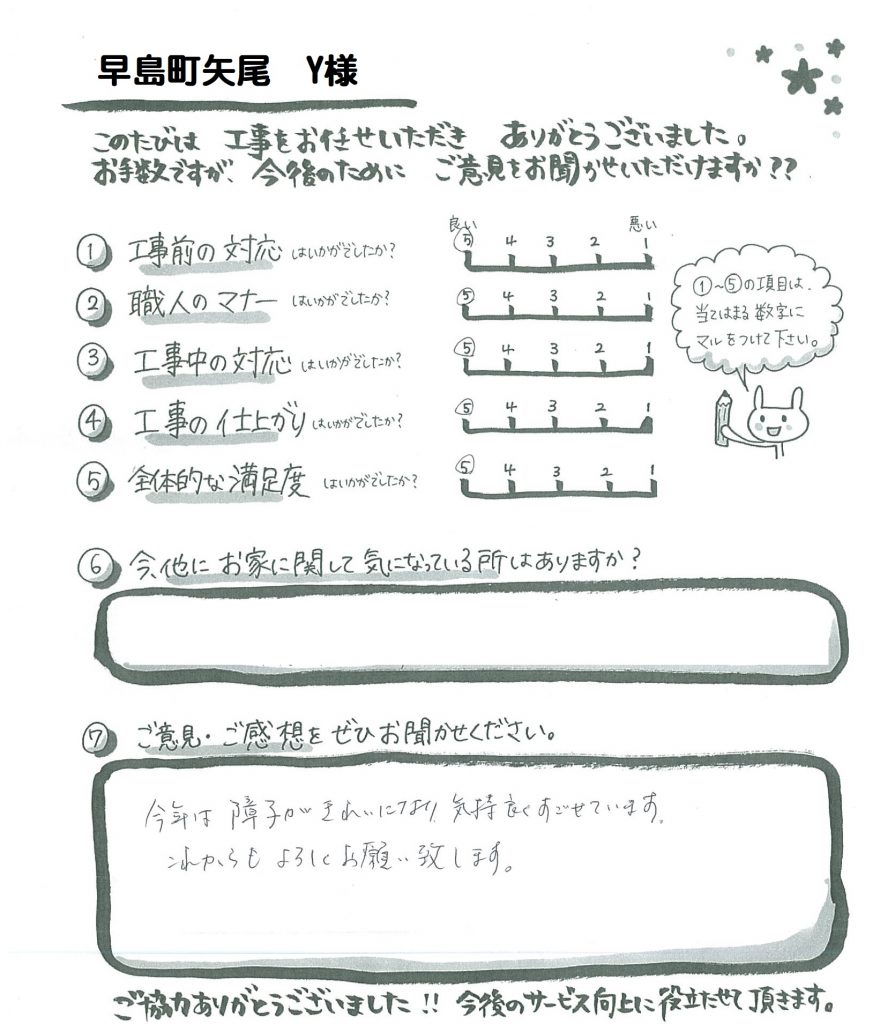 早島町矢尾　Y様
このたびは 工事をお任せいただき ありがとうございました。
お手数ですが、今後のために ご意見をお聞かせいただけますか??
良い 悪い
① 工事前の対応 はいかがでしたか? 5 4 3 2 1
② 職人のマナー はいかがでしたか? 5 4 3 2 1
③ 工事中の対応 はいかがでしたか? 5 4 3 2 1
④ 工事の仕上がり はいかがでしたか? 5 4 3 2 1
⑤ 全体的な満足度 はいかがでしたか? 5 4 3 2 1
①~⑤の項目は、
当てはまる数字に
マルをつけて下さい。
⑥ 今、他にお家に関して気になっている所はありますか?
⑦ ご意見・ご感想をぜひお聞かせください。
今年は障子がきれいになり、気持良くすごせています。
これからもよろしくお願い致します。
ご協力ありがとうございました!! 今後のサービス向上に役立たせて頂きます。